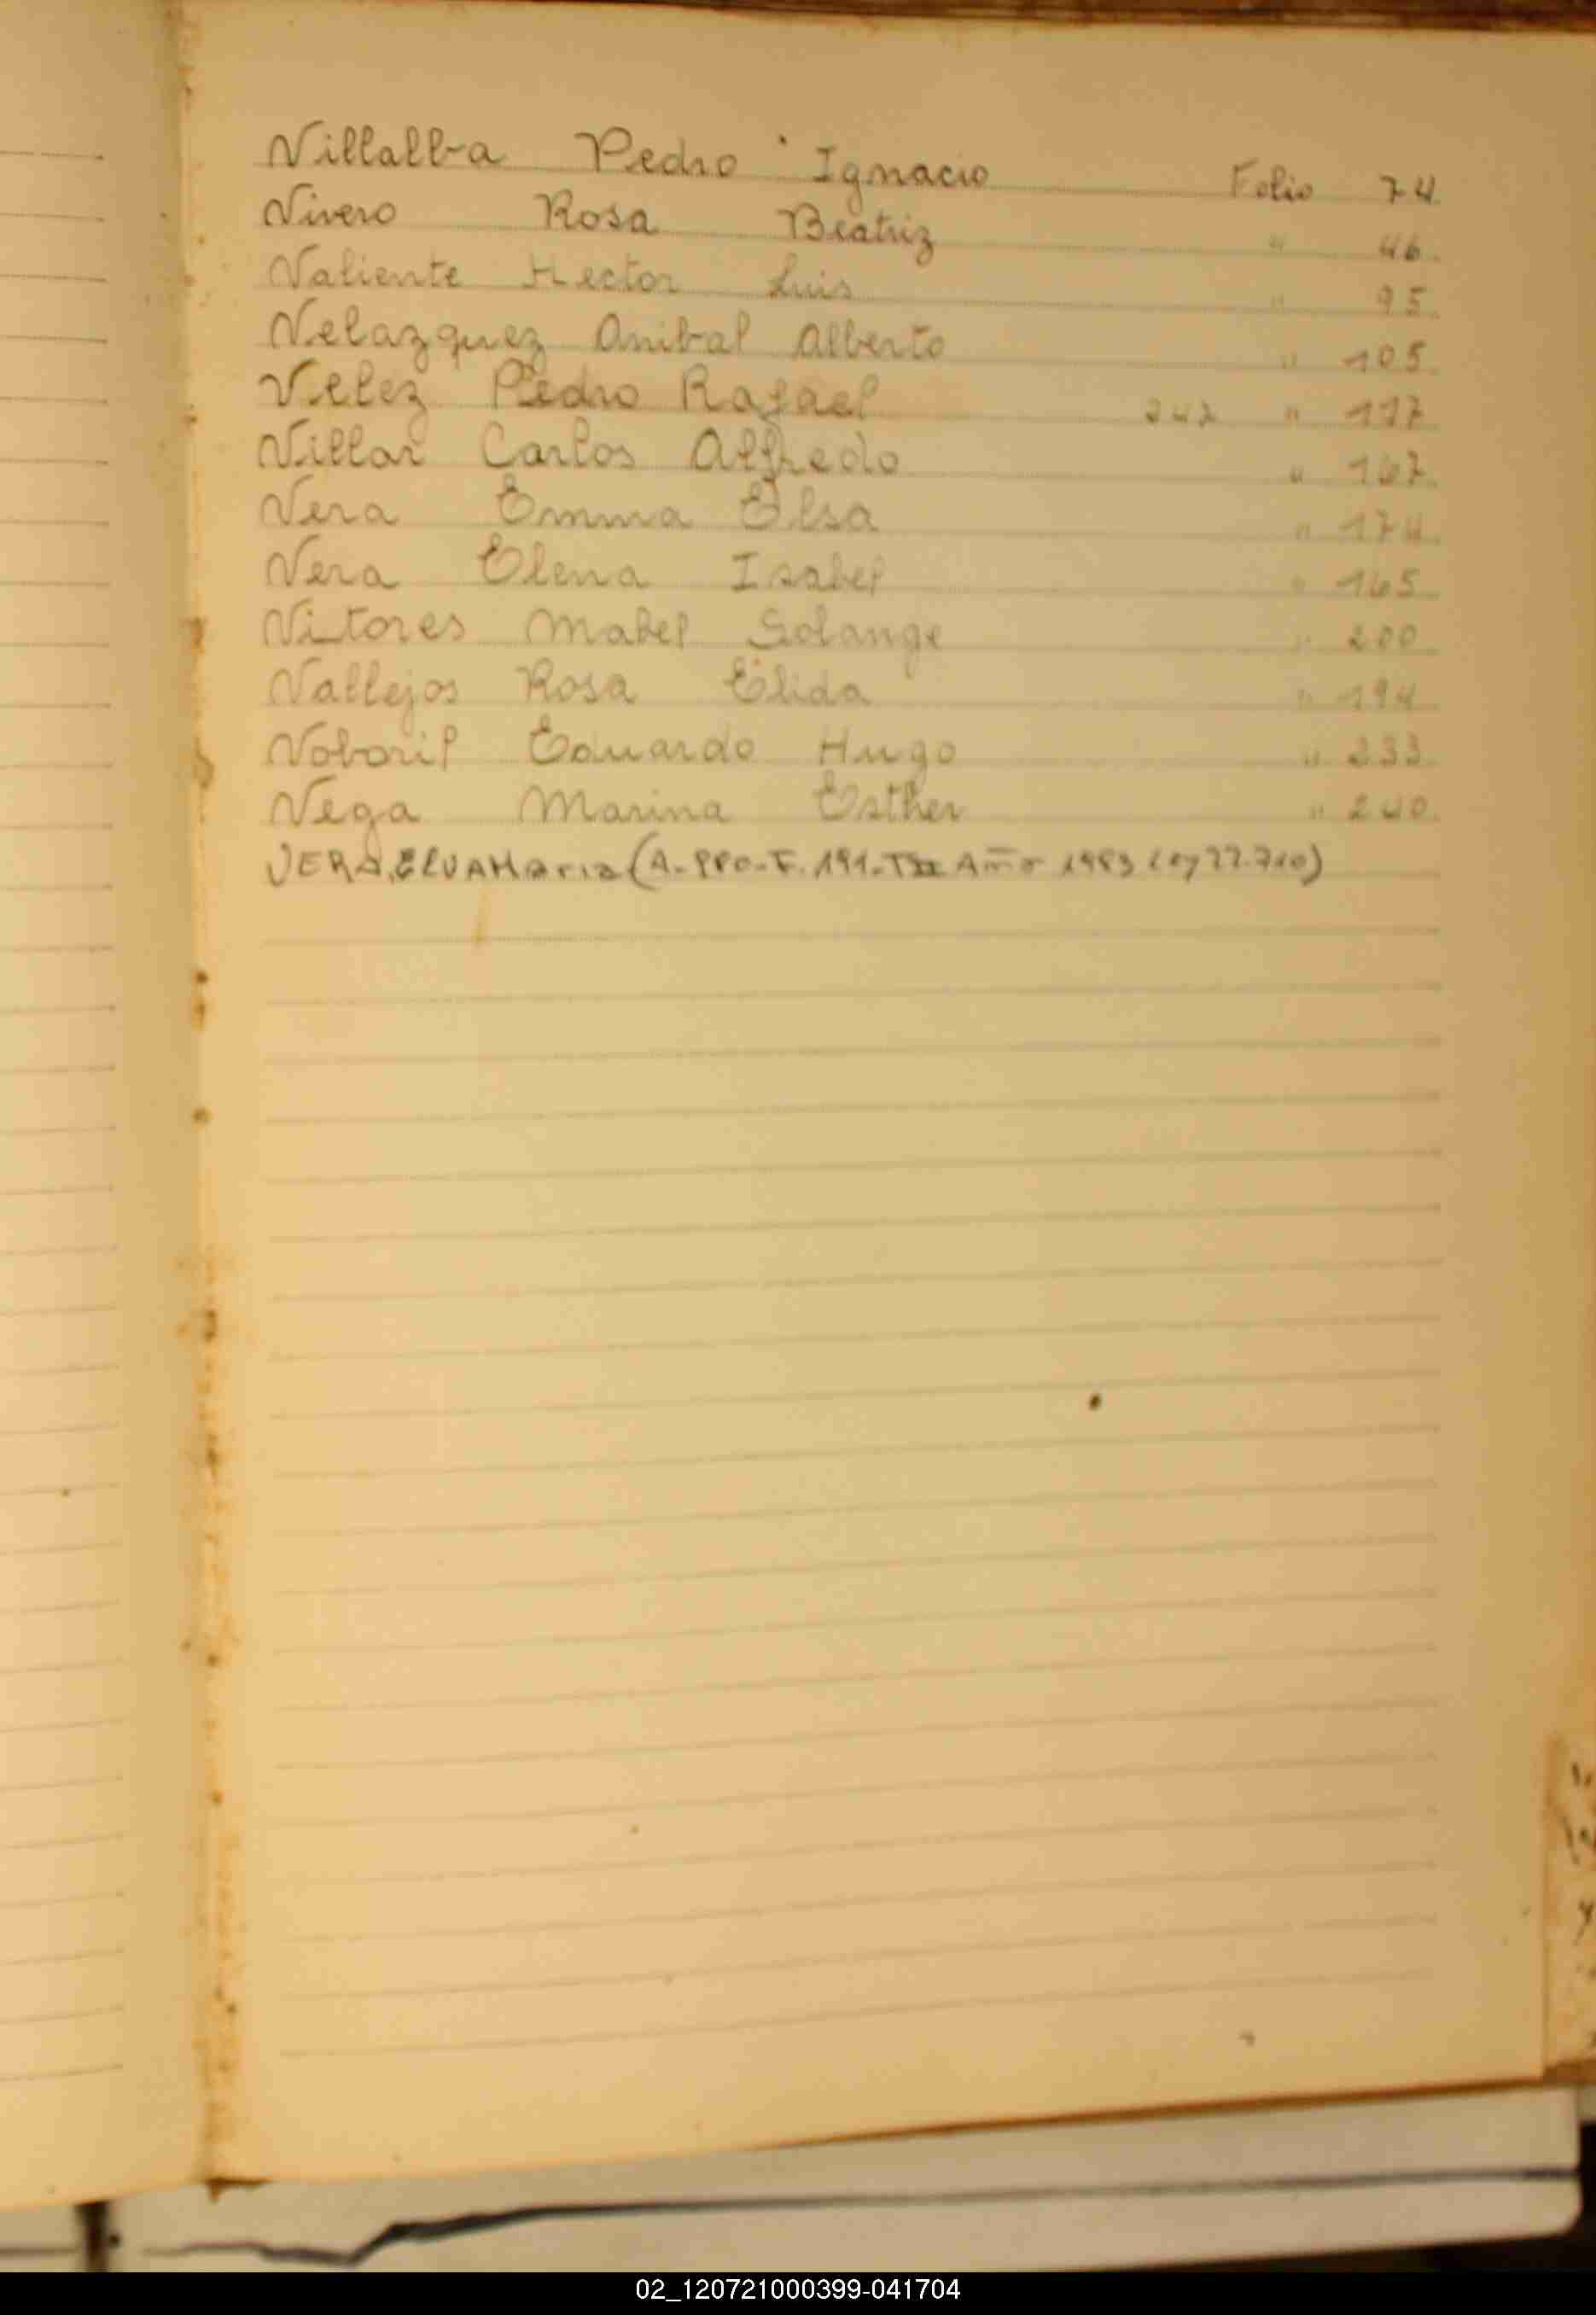 Villalba Pedro Ignacio Folio 74
Vivero Rosa Beatriz " 46
Valiente Hector Luis " 95
Velazquez Anibal Alberto " 105
Velez Pedro Rafael 247 " 117
Villar Carlos Alfredo " 167
Vera Emma Elsa " 174
Vera Elena Isabel " 165
Vitores Mabel Solange " 200
Vallejos Rosa Elida " 194
Voboril Eduardo Hugo " 233
Vega Marina Esther " 240
VERA, ELVA Maria (A-PPO-F. 191-TII Año 1983 Ley 22.710)
02_120721000399-041704